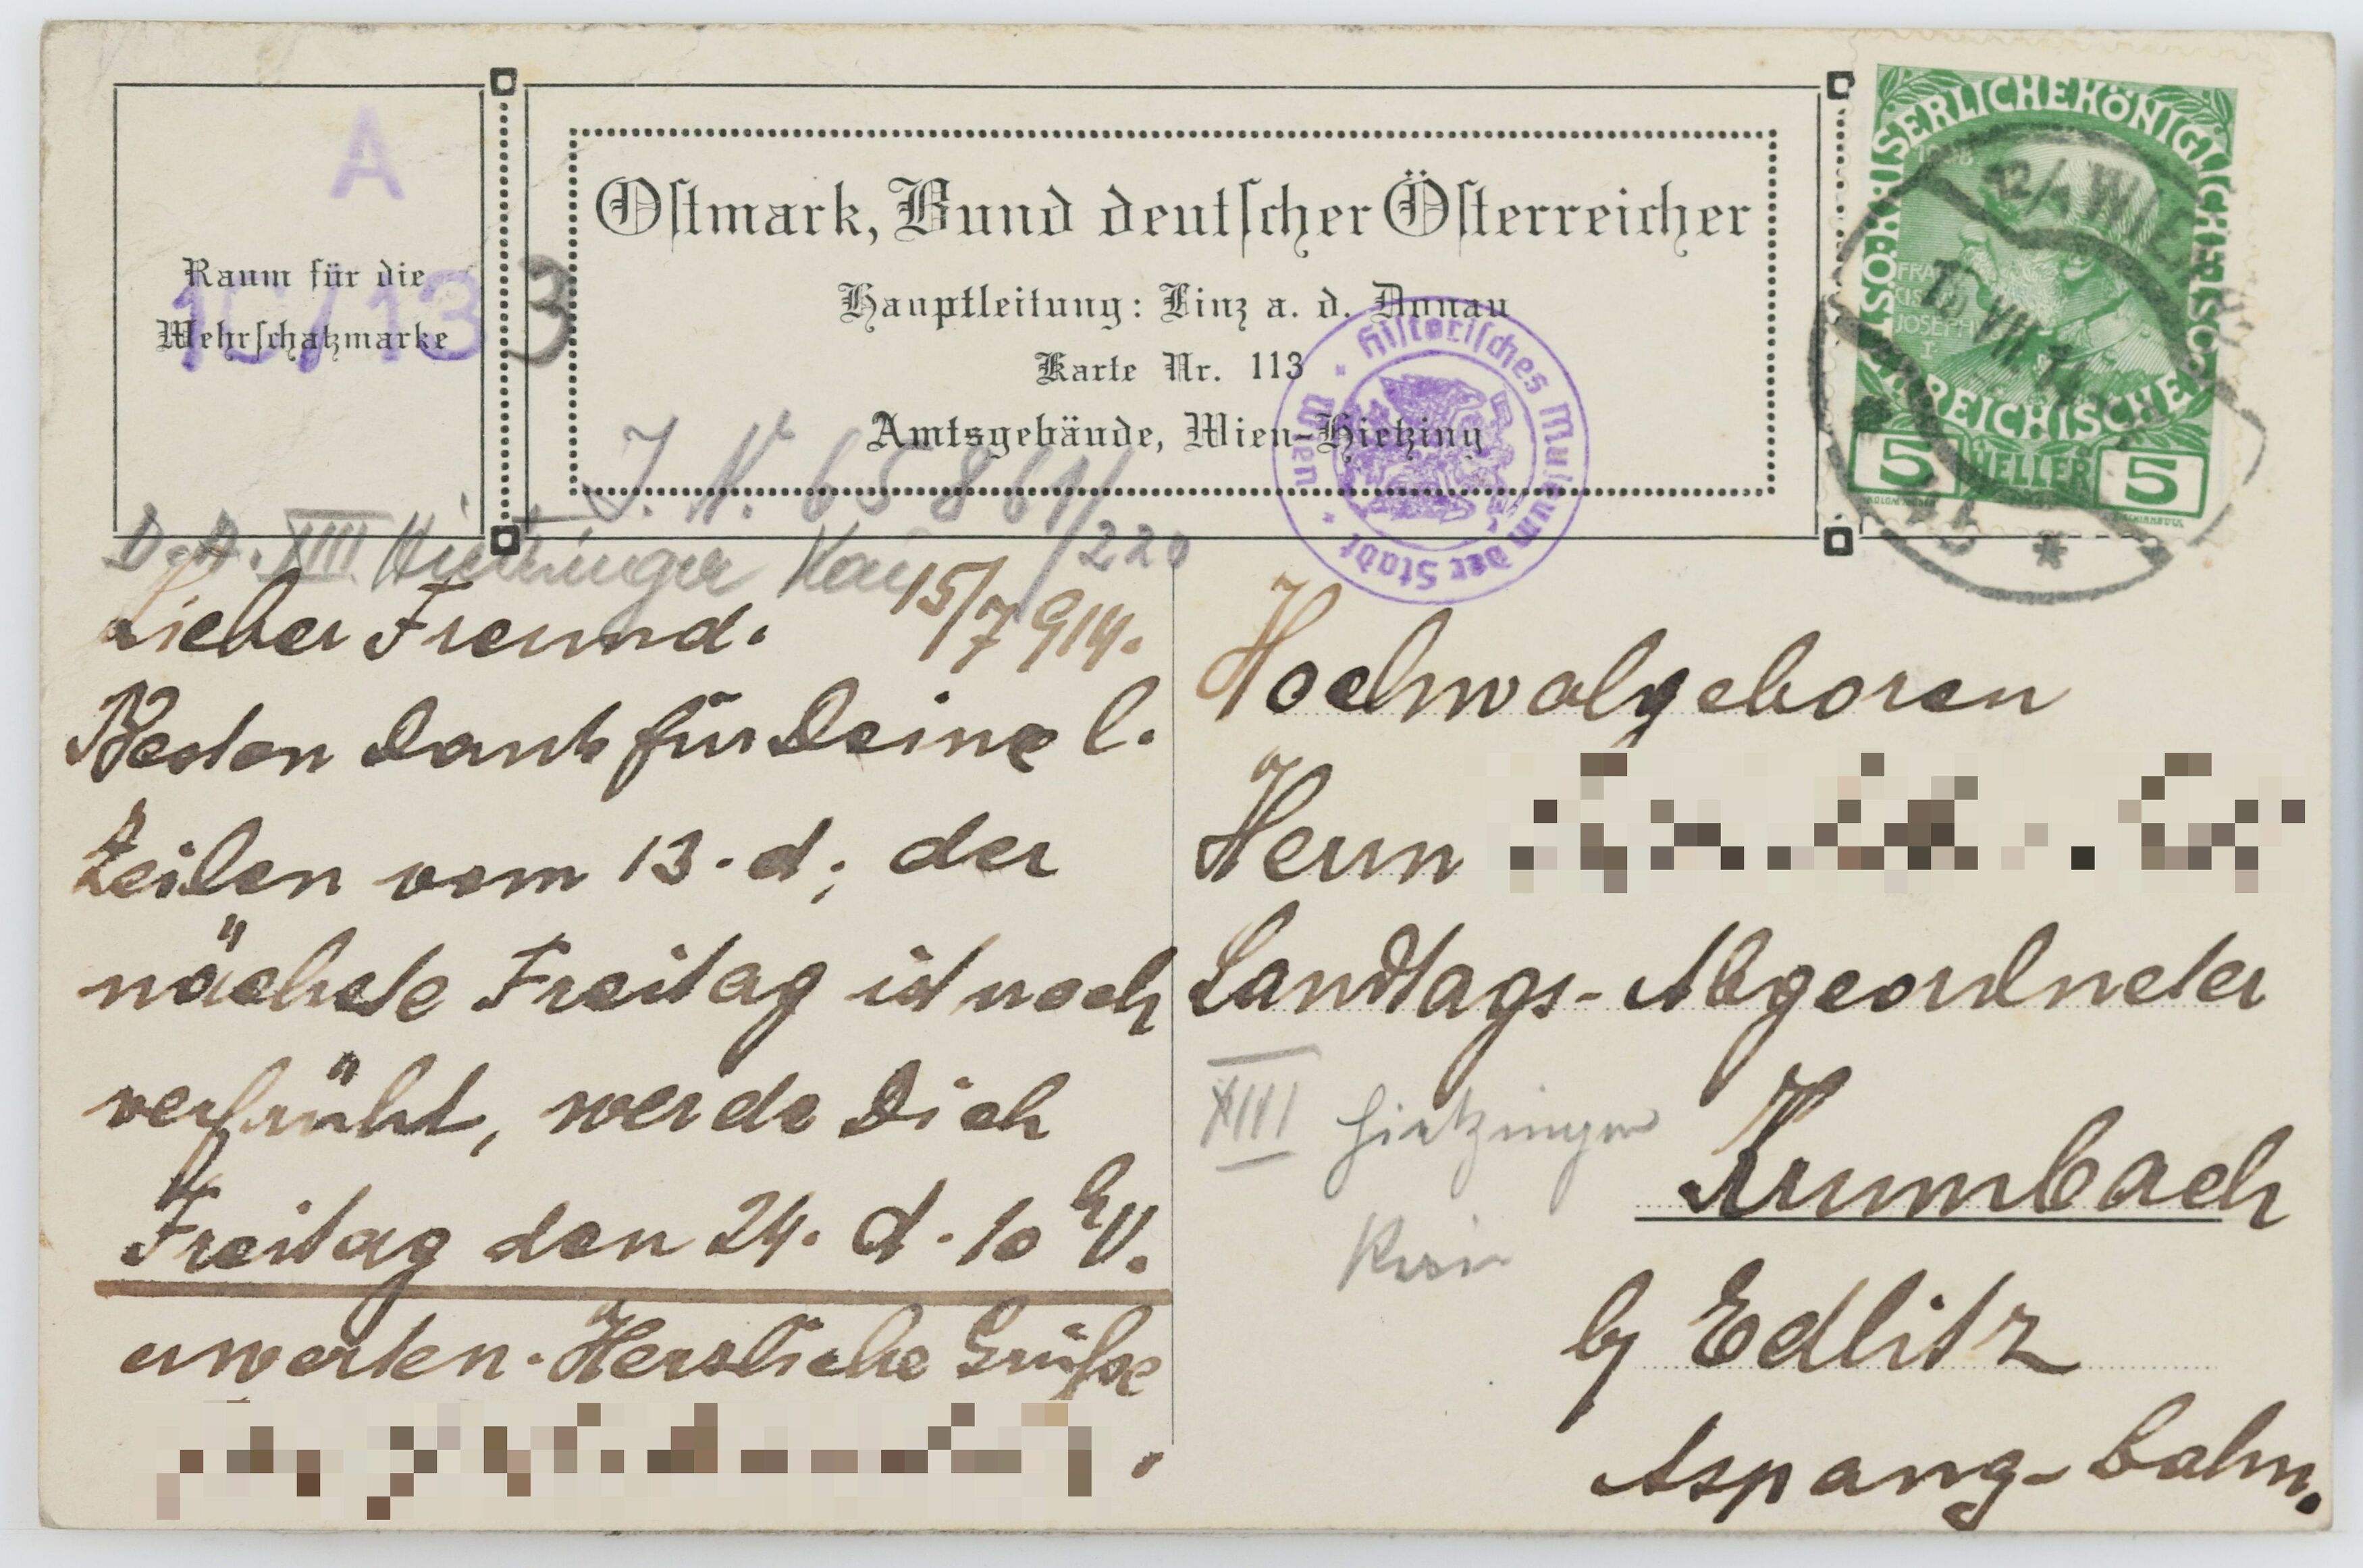 A
Raum für die
Wehrschatzmarke
10/13 3
Ostmark, Bund deutscher Österreicher
Hauptleitung: Linz a. d. Donau
Karte Nr. 113
Amtsgebäude, Wien-Hietzing
Historisches Museum der Stadt Wien
KAISERLICHE KÖNIGLICHE ÖSTERREICHISCHE
1908
FRANZ
JOSEPH
I.
5 HELLER 5
WIEN
VII. 14
J. N. 65861/220
XIII Hietzinger Kai
Lieber Freund. 15/7 914.
Besten Dank für Deine l.
Zeilen vom 13. d; der
nächste Freitag ist noch
verfrüht, werde Dich
Freitag den 24. d. 10 h V.
erwarten. Herzliche Grüße
Hochwolgeboren
Herrn
Landtags-Abgeordneter
XIII Hietzinger
Krumbach
by Edlitz
Aspang-Bahn.